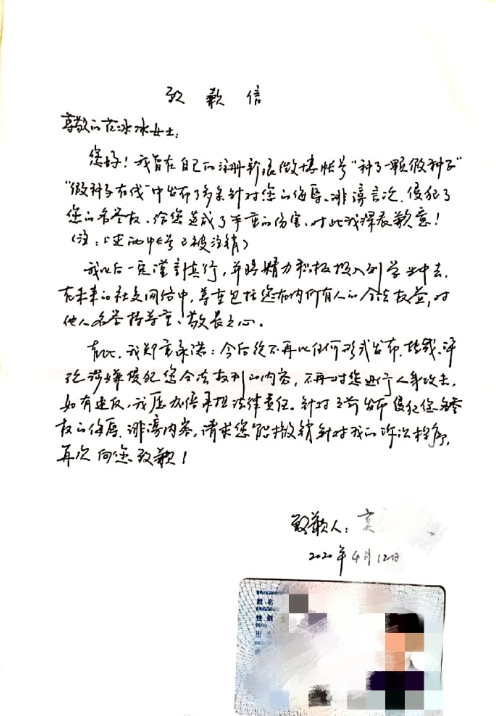 致歉信
尊敬的范冰冰女士:
您好!我曾在自己的注册新浪微博帐号“种了一颗假种子”
“假种子在线”中发布了多条针对您的侮辱、诽谤言次,侵犯了
您的名誉权,给您造成了严重的伤害,对此我深表歉意!
(注:上述两帐号已被注销)
我以后一定谨言慎行,并将精力积极投入到学业中去,
在未来的社交网络中,尊重包括您在内所有人的合法权益,对
他人名誉持尊重、敬畏之心。
在此,我郑重承诺:今后绝不再以任何形式发布、转载、评
论涉嫌侵犯您合法权利的内容,不再对您进行人身攻击,
如有违反,我愿加倍承担法律责任。针对之前发布侵犯您名誉
权的侮辱、诽谤内容,请求您能撤销针对我的诉讼程序,
再次向您致歉!
致歉人:
2020年4月12日
姓名
性别